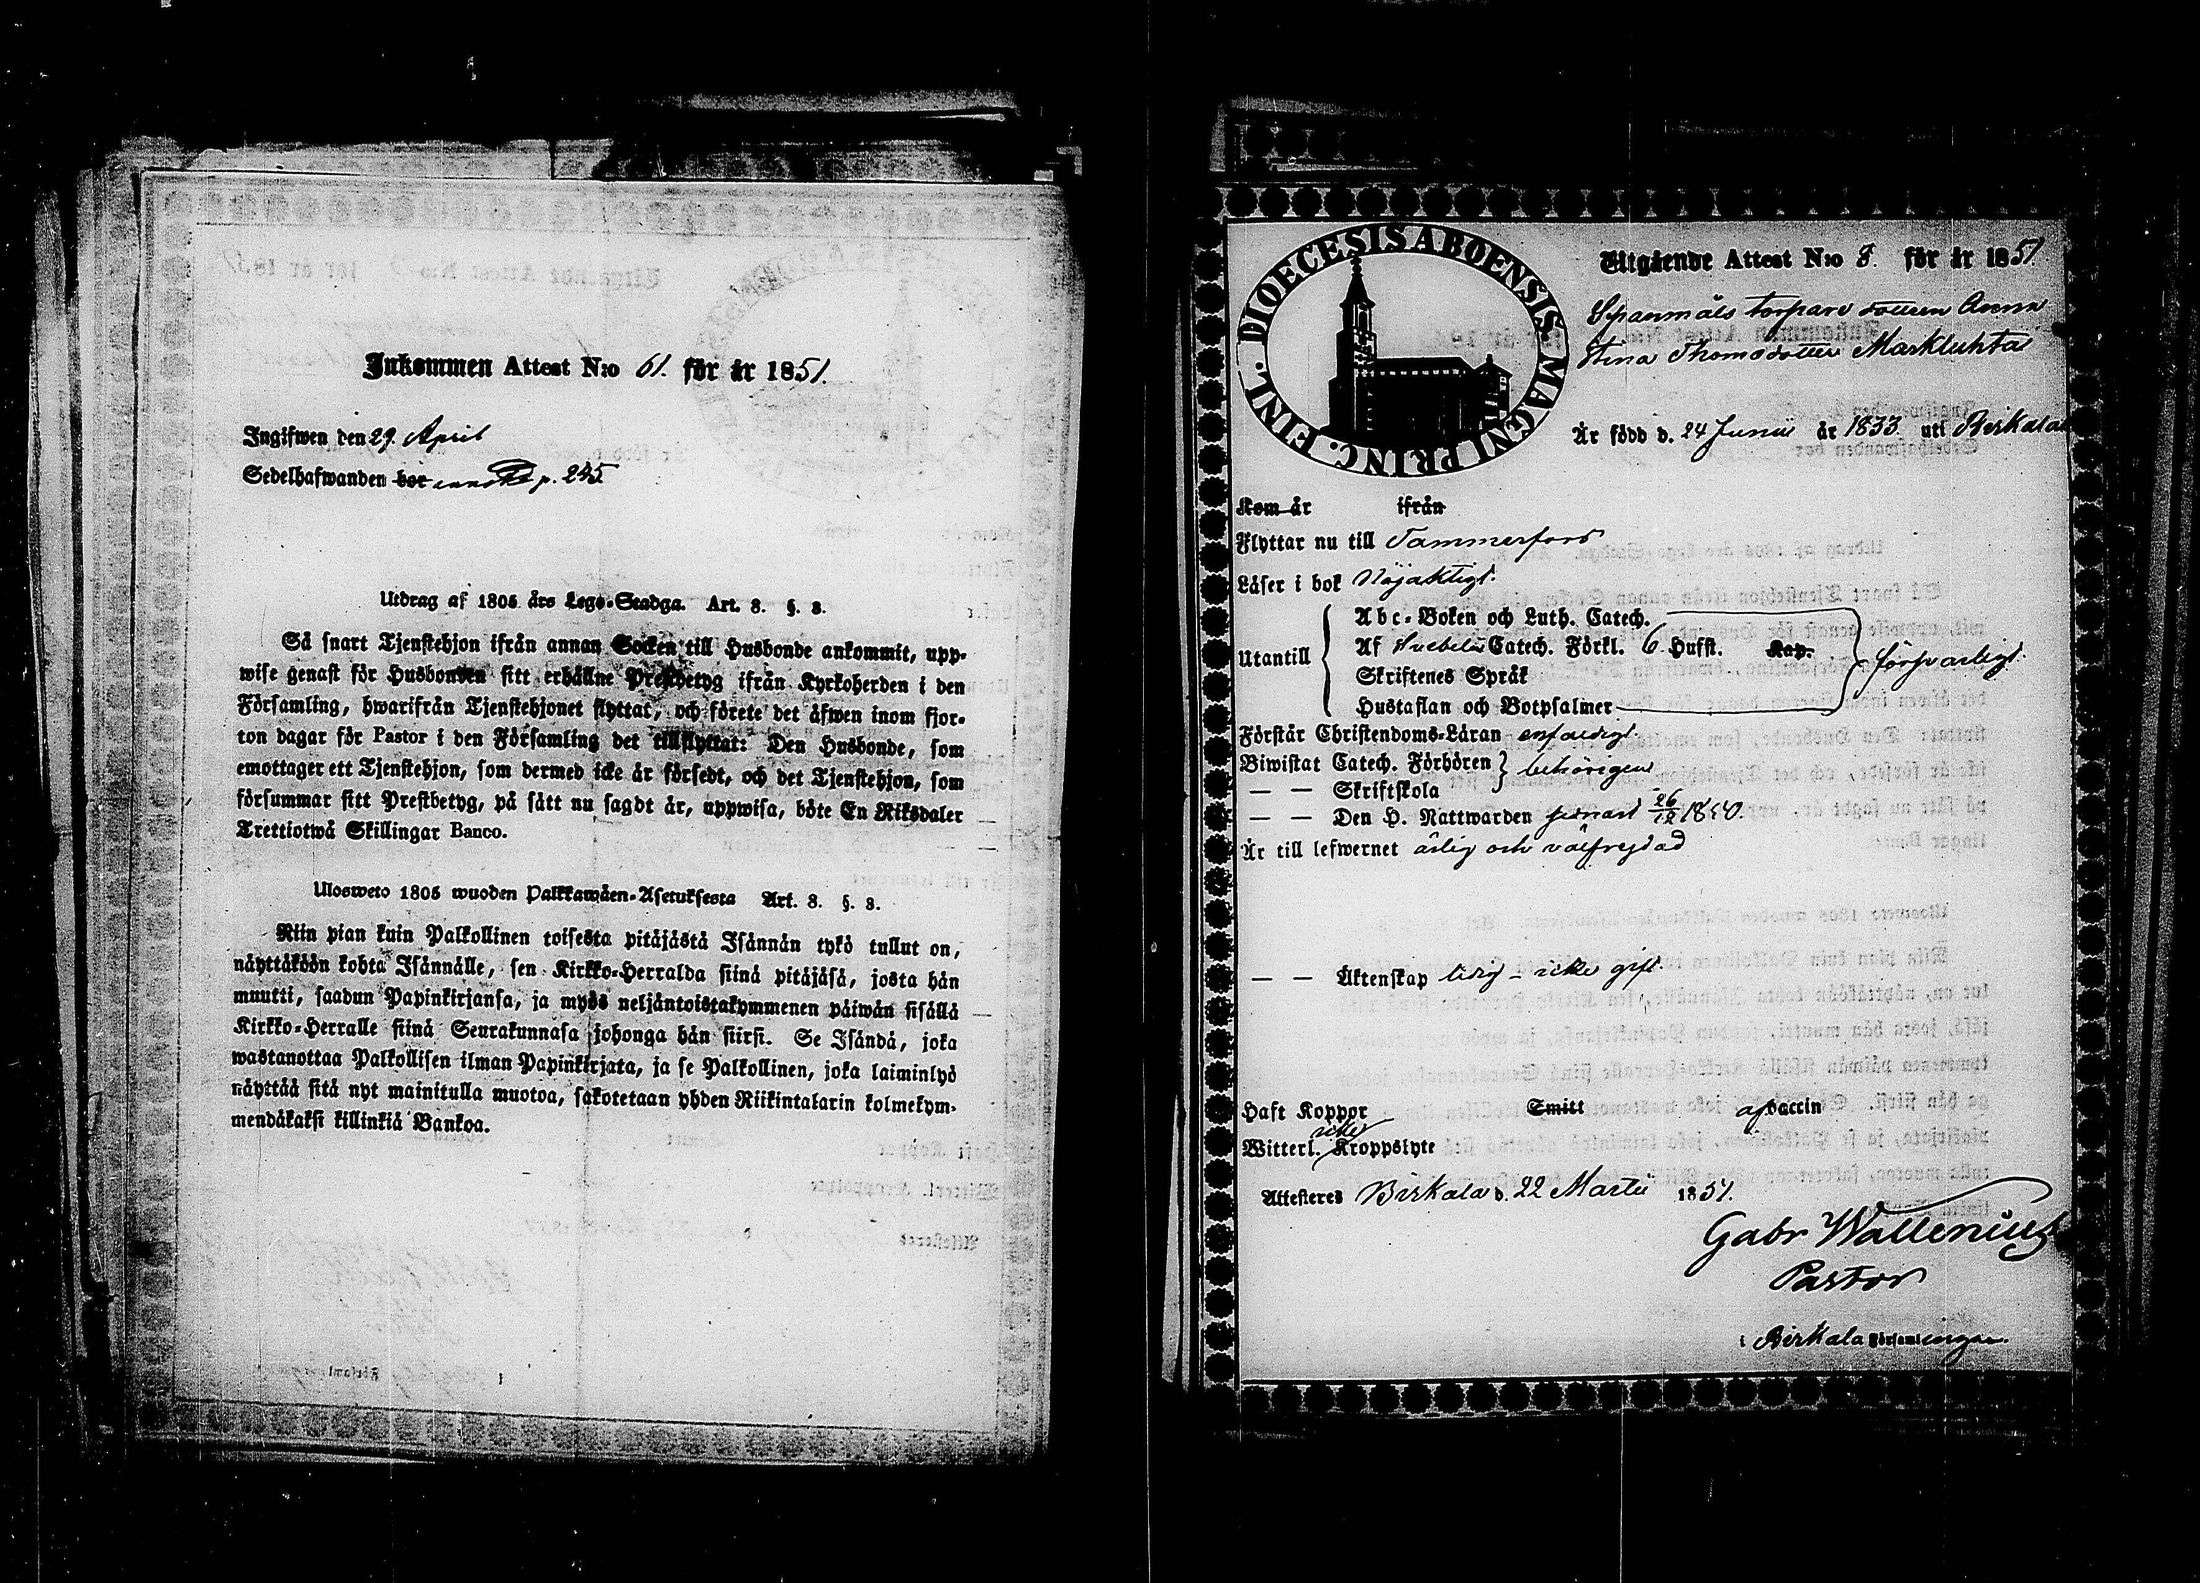 Inkommen Attest N:o 61. för år 1851.
Ingifwen den 29. April
Sedelhafwanden bör p. 245
Utdrag af 1805 års Lego-Stadga. Art. 8. §. 8.
Så snart Tjenstehjon ifrån annan Socken till Husbonde ankommit, upp-
wise genast för Husbonden sitt erhållne Prestbetyg ifrån Kyrkoherden i den
Församling, hwarifrån Tjenstehjonet flyttat, och förete det äfwen inom fjor-
ton dagar för Pastor i den Församling det tillflyttat: Den Husbonde, som
emottager ett Tjenstehjon, som dermed icke är försedt, och det Tjenstehjon, som
försummar sitt Prestbetyg, på sätt nu sagdt är, uppwisa, böte En Riksdaler
Trettiotwå Skillingar Banco.
Ulosweto 1805 wuoden Palkkawäen-Asetuksesta Art. 8. §. 8.
Niin pian kuin Palkollinen toisesta pitäjästä Isännän tykö tullut on,
näyttäköön kohta Isännälle, sen Kirkko-Herralda siinä pitäjäsä, josta hän
muutti, saadun Papinkirjansa, ja myös neljäntoistakymmenen päiwän sisällä
Kirkko-Herralle siinä Seurakunnasa johonga hän siirsi. Se Isändä, joka
wastanottaa Palkollisen ilman Papinkirjata, ja se Palkollinen, joka laiminlyö
näyttää sitä nyt mainitulla muotoa, sakotetaan yhden Riikintalarin kolmekym-
mendäkaksi killinkiä Bankoa.
FINL. DIOECESIS ABOENSIS MAGNI PRINC.
Utgående Attest N:o 8. för år 1851.
Spanmåls torpare dottren Anna
Stina Thomasdotter Markluhta
Är född d. 24 Junii år 1833 uti Birkala
Kom år ifrån
Flyttar nu till Tammerfors
Läser i bok Nöjaktigt.
Utantill
Abc-Boken och Luth. Catech.
Af Svebelii Catech. Förkl. 6 Hufst. Kap.
Skriftenes Språk
Hustaflan och Botpsalmer
försvarligt.
Förstår Christendoms-Läran enfaldigt.
Biwistat Catech. Förhören
— — Skriftskola
behörigen
— — Den H. Nattwarden senast 26/12 1850.
Är till lefwernet ärlig och välfrejdad
— — Äktenskap ledig - icke gift.
Haft Koppor Smitt af vaccin
Witterl. icke Kroppslyte
Attesteres Birkala d. 22 Martii 1851.
Gabr Wallenius
Pastor
i Birkala Församlingar.